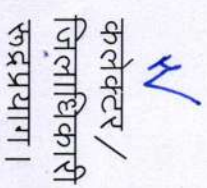 कलेक्टर /
जिलाधिकारी
रूद्रप्रयाग।